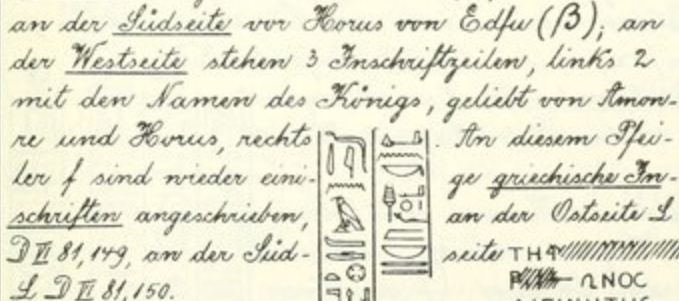 an der Südseite vor Horus von Edfu (β); an
der Westseite stehen 3 Inschriftzeilen, links 2
mit den Namen des Königs, geliebt von Amon-
re und Horus, rechts . An diesem Pfei-
ler f sind wieder eini- ge griechische In-
schriften angeschrieben, an der Ostseite L
D VI 81,149, an der Süd- seite
L D VI 81,150. ΩNOC